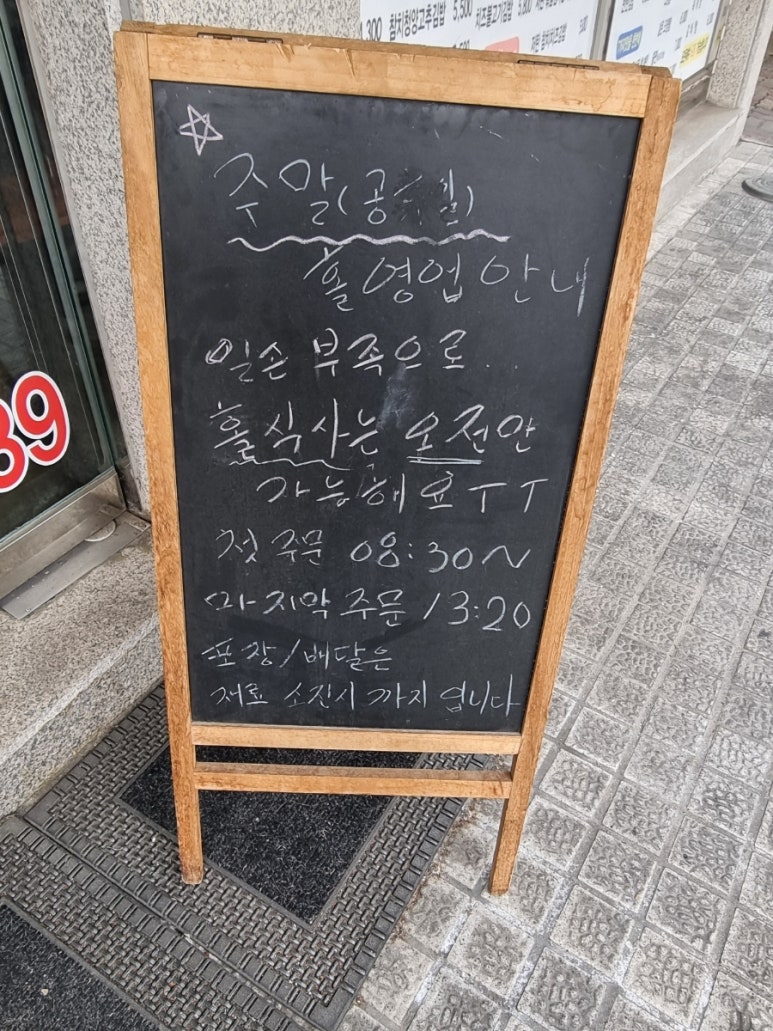 ,300 참치청양고추김밥 5,500 치즈불고기김밥
☆
주말(공휴일)
홀 영업 안내
일손 부족으로..
홀 식사는 오전만
가능해요 ㅜㅜ
첫 주문 08:30~
마지막 주문 13:20
포장/배달은
재료 소진시 까지 엽니다
89